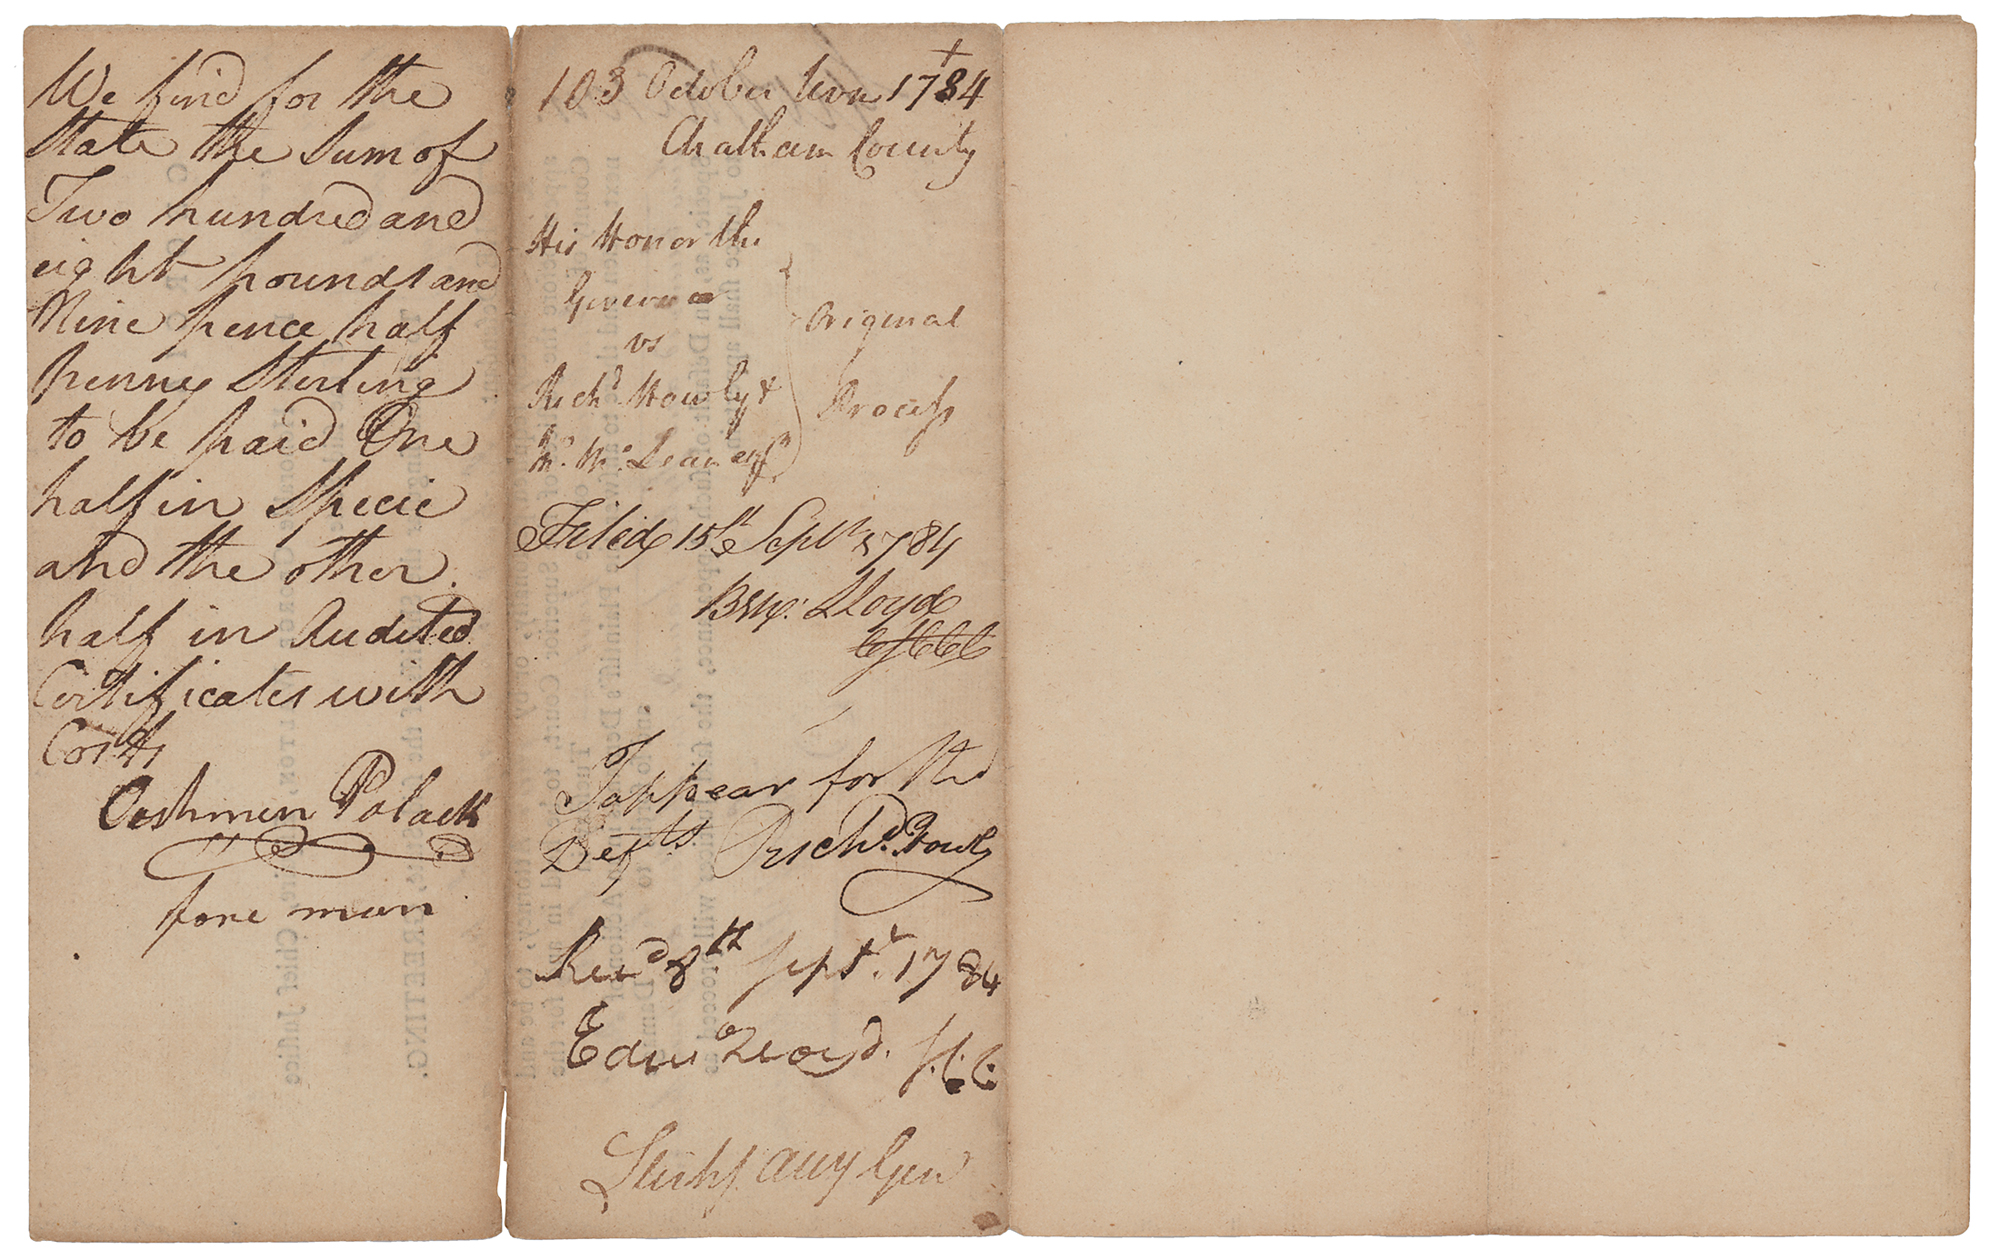 We find for the
State the Sum of
Two hundred and
eight pounds and
Nine pence half
penney Sterling
to be paid One
half in Specie
and the other
half in Audited
Certificates with
Costs
Cushman Polack
fore man
103 October Term 1784
Chatham County
His Honor the
Governor
vs
Richd Howly &
Original
Process
Filed 15th Septr 1784
By Lloyd
I appear for the
Defts. Richd. Howly
Recd 8th Septr. 1784
Edwd Lloyd. S.C.C.
Atty Gen